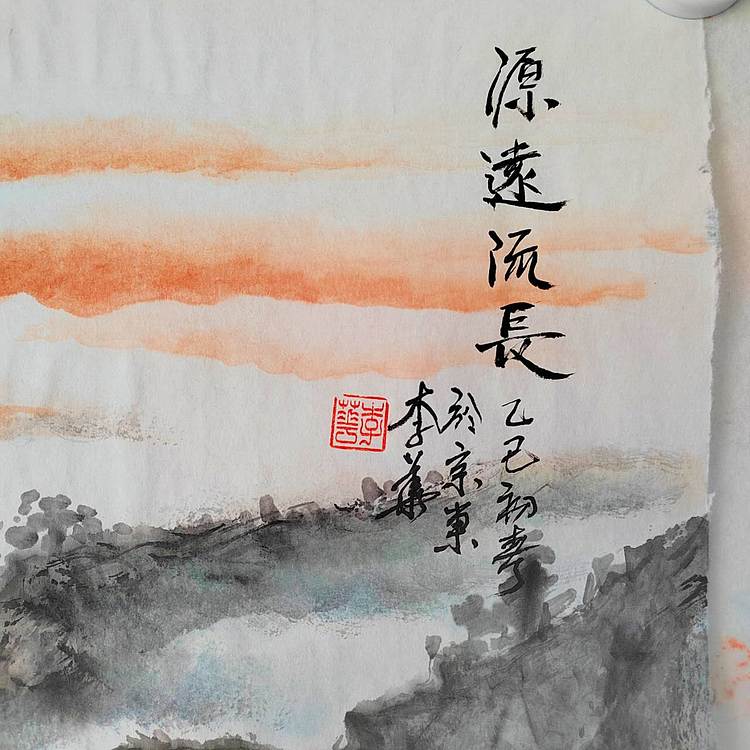 源遠流長
乙巳初春
於京東
李華
李華